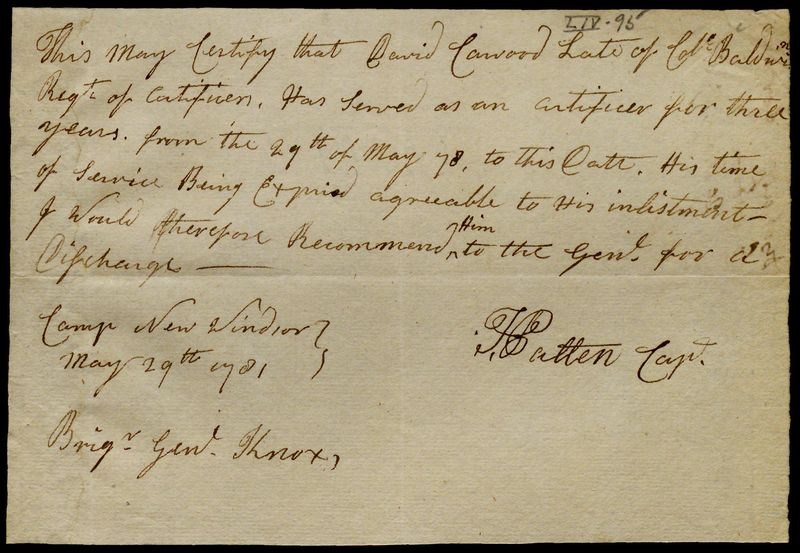 LIV-95
This May Certify that David Cawood Late of Col.º Baldwins
Regt. of Artificers. Has Served as an artificer for three
years. from the 29th of May 78, to this Date. His time
of Service Being Expired agreeable to His inlistment
I Would therefore Recommend ^Him to the Genl. for a
Discharge —
Camp New Windsor }
May 29th 1781
J Patten Capt.
Brigr. Genl. Knox,